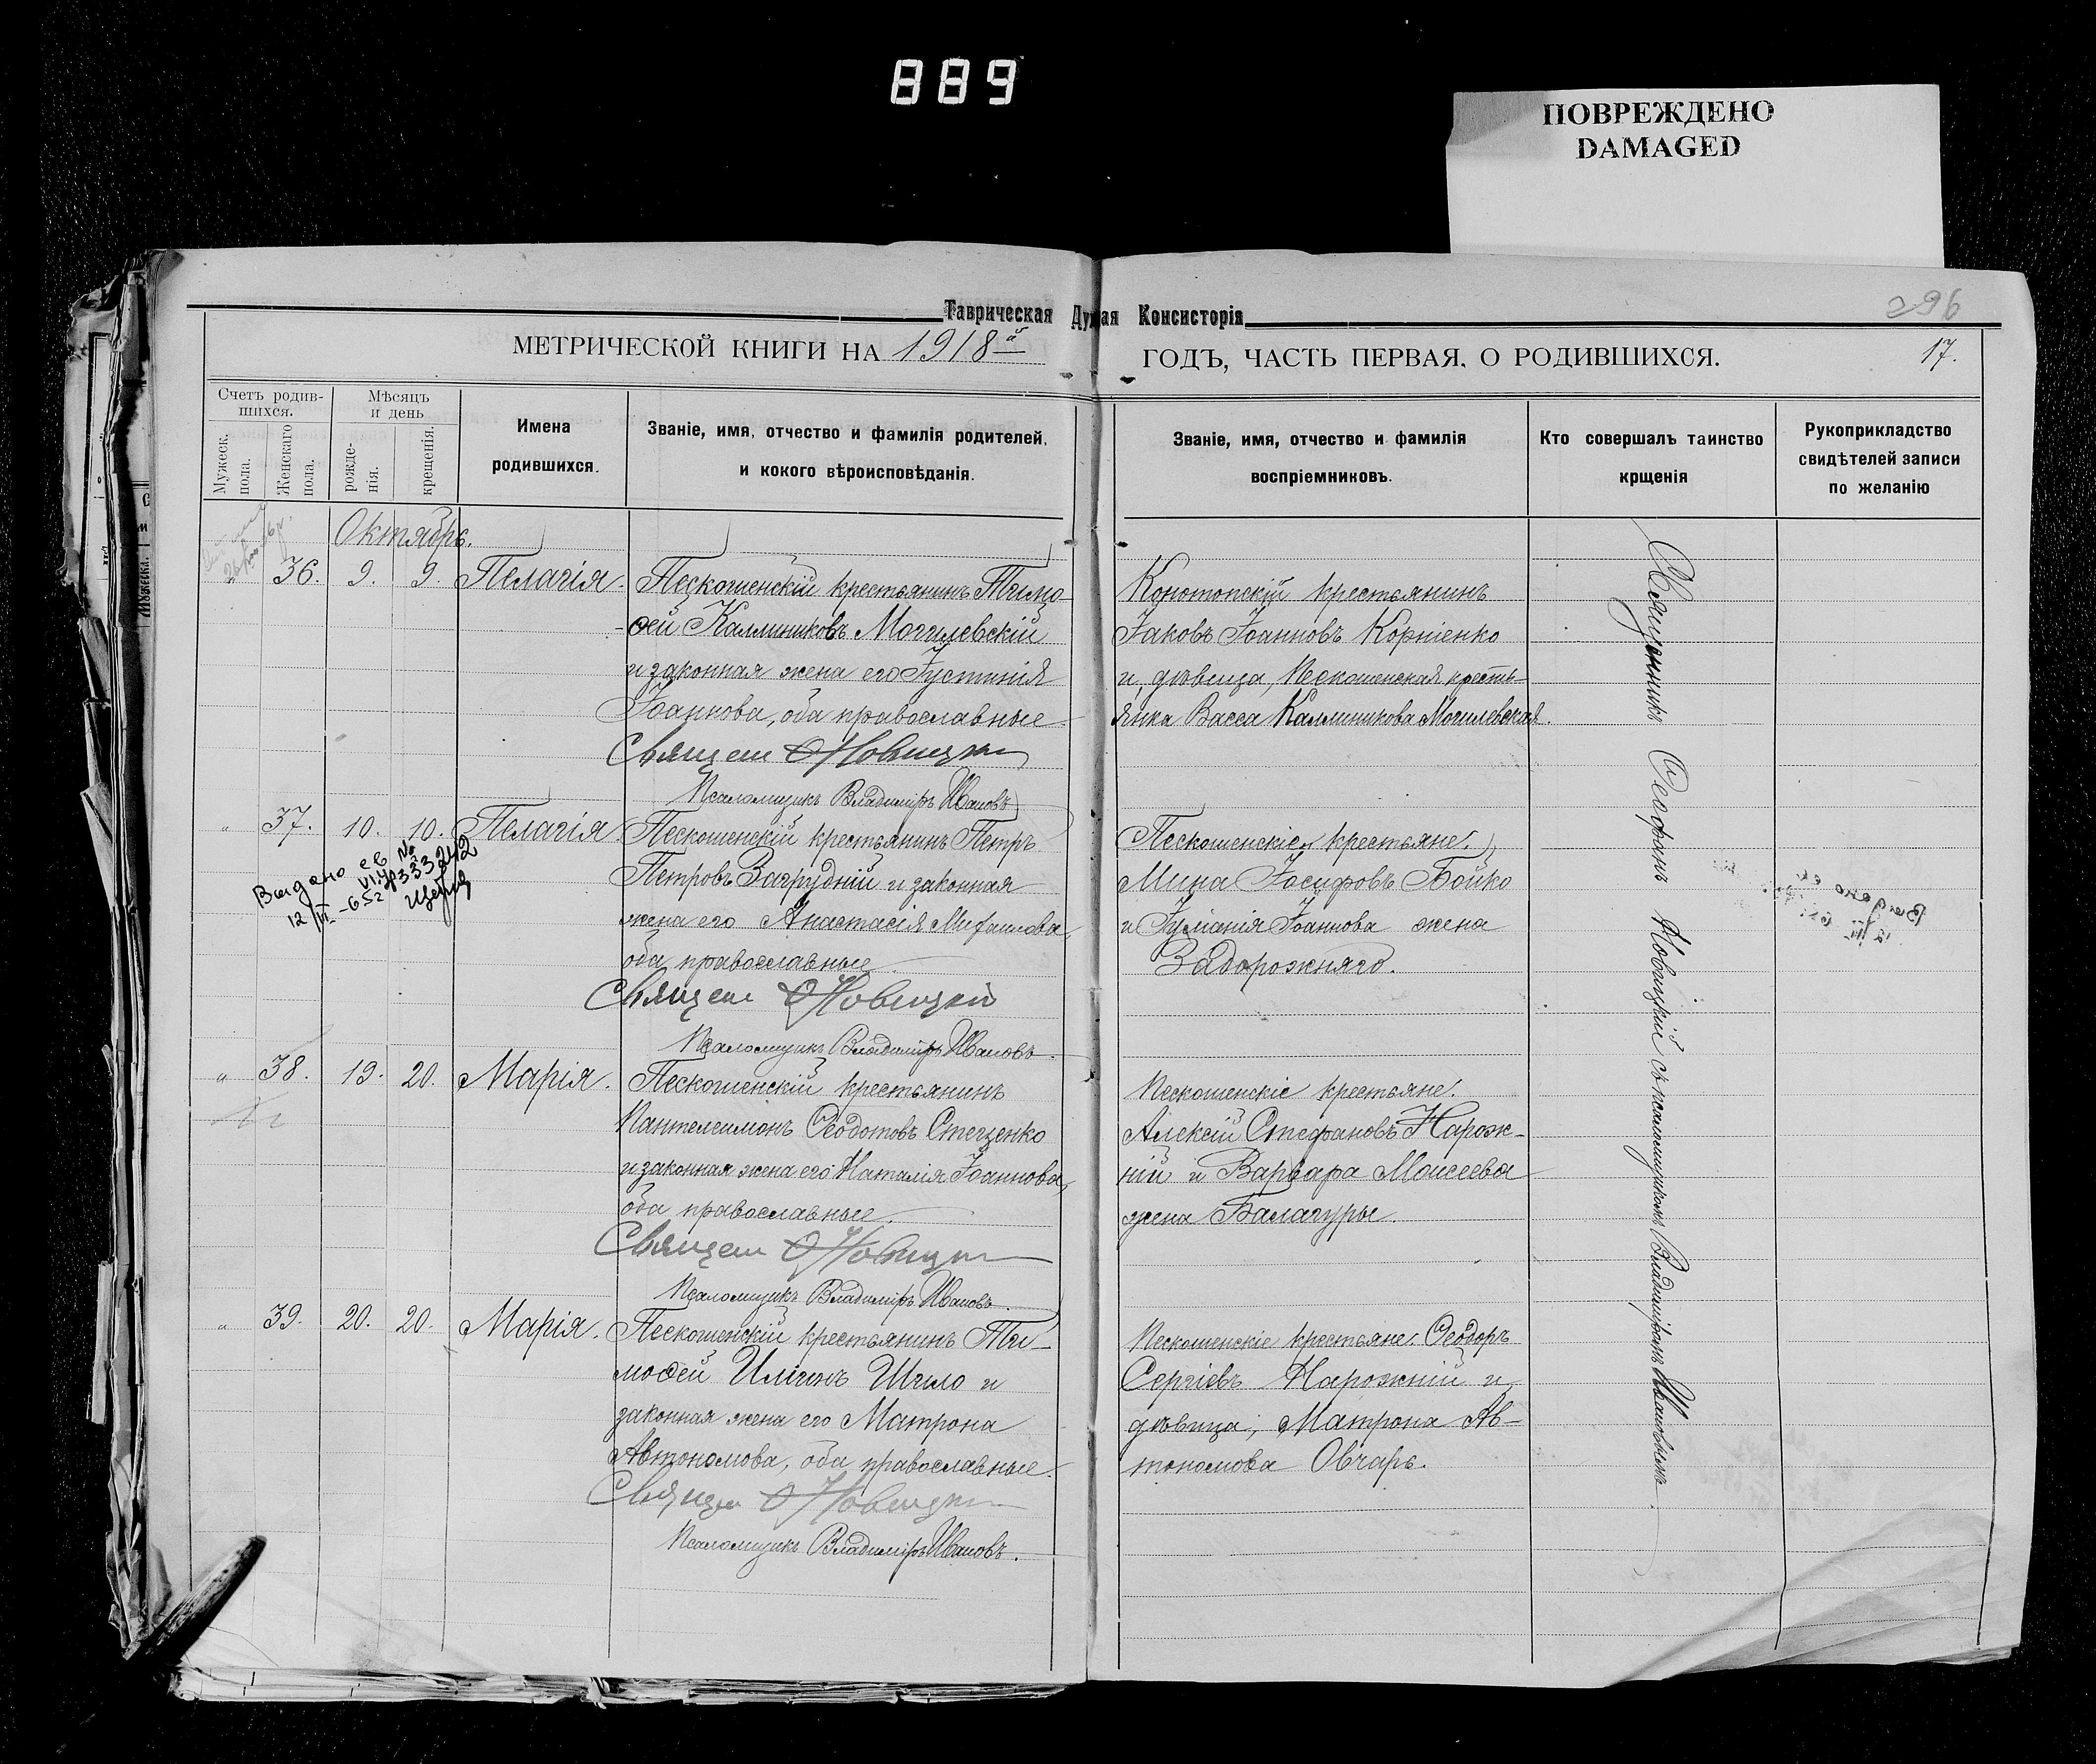 889
ПОВРЕЖДЕНО
DAMAGED
296
Таврическая Духая Консисторія
МЕТРИЧЕСКОЙ КНИГИ НА 1918й ГОДЪ, ЧАСТЬ ПЕРВАЯ, О РОДИВШИХСЯ. 17.
Счетъ родив-
шихся.
Мужеск. пола.
Женскаго пола.
Мѣсяцъ
и день
рожде-
нія.
крещенія.
Имена
родившихся.
Званіе, имя, отчество и фамилія родителей,
и кокого вѣроисповѣданія.
Званіе, имя, отчество и фамилія
воспріемниковъ.
Кто совершалъ таинство
крщенія
Рукоприкладство
свидѣтелей записи
по желанію
Октябрь.
" 36. 9. 9. Пелагія.
Пескошенскій крестьянинъ Тимо-
ѳей Каллиниковъ Могилевскій
и законная жена его Іустинія
Іоаннова, оба православные.
Священ Ѳ Новицкій
Псаломщикъ Владиміръ Ивановъ
Конотопскій крестьянинъ
Іаковъ Іоанновъ Корніенко
и, дѣвица, Пескошенская кресть-
янка Васса Каллиникова Могилевская.
" 37. 10. 10. Пелагія
Выдано св №
12/III-65г
Пескошенскій крестьянинъ Петръ
Петровъ Загрудній и законная
жена его Анастасія Михаилова,
оба православные.
Священ Ѳ Новицкій
Псаломщикъ Владиміръ Ивановъ.
Пескошенскіе крестьяне:
Мина Іосифовъ Бойко
и Іуліанія Іоаннова жена
Задорожняго.
" 38. 19. 20. Марія.
Пескошенскій крестьянинъ
Пантелеимонъ Ѳеодотовъ Стеценко
и законная жена его Наталія Іоаннова,
оба православные.
Священ Ѳ Новицкій
Псаломщикъ Владиміръ Ивановъ.
Пескошенскіе крестьяне:
Алексій Стефановъ Нарож-
ній и Варвара Моисеева
жена Балагуры.
" 39. 20. 20. Марія.
Пескошенскій крестьянинъ Ти-
моѳей Иліинъ Шило и
законная жена его Матрона
Автономова, оба православные.
Священ Ѳ Новицкій
Псаломщикъ Владиміръ Ивановъ.
Пескошенскіе крестьяне: Ѳеодоръ
Сергіевъ Нарожній и
дѣвица, Матрона Ав-
тономова Овчаръ.
Священникъ Ѳеофанъ Новицкій съ псаломщикомъ Владиміромъ Ивановымъ.